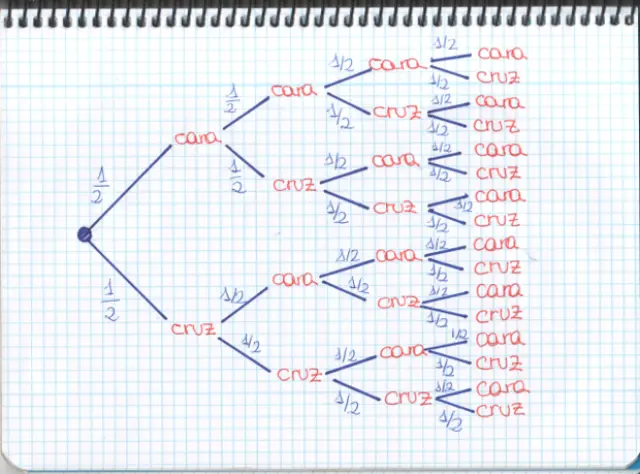 1/2 cara
1/2 cara 1/2 cruz
1/2 cara 1/2 cruz 1/2 cara
1/2 cruz
cara 1/2 cara 1/2 cara
1/2 1/2 cruz 1/2 cruz
1/2 cruz 1/2 cruz 1/2 cara
1/2 cruz
1/2 cara 1/2 cara
1/2 cruz
1/2 cara 1/2 cruz 1/2 cara
1/2 cruz
cruz 1/2 cara 1/2 cara
1/2 1/2 cruz
cruz 1/2 cruz 1/2 cara
1/2 cruz